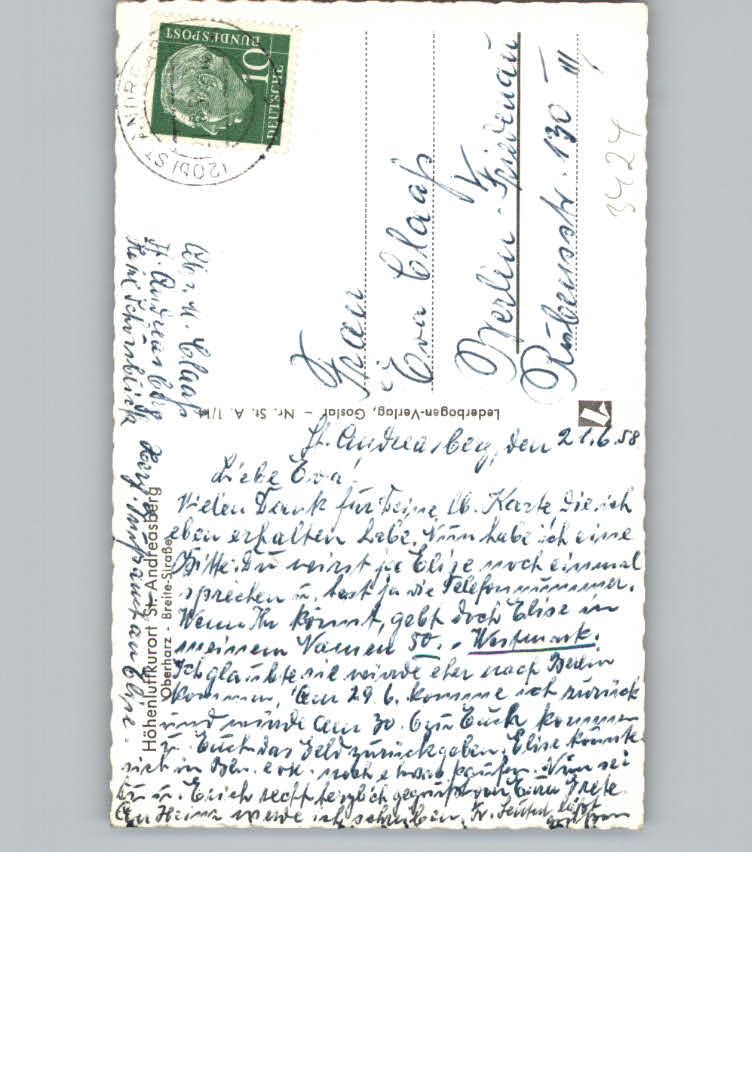 DEUTSCHE
BUNDESPOST
10
(20b) ST. ANDREASBERG
Frau
Eva Claaß
Berlin-Friedenau
Rubensstr. 130 III
3424
Abs. M. Claaß
St. Andreasberg Harz
Lederbogen-Verlag, Goslar – Nr. St. A. 1/14
Höhenluftkurort St. Andreasberg
Oberharz - Breite-Straße
St. Andreasberg, den 21.6.58
Liebe Eva!
Vielen Dank für Deine lb. Karte die ich
eben erhalten habe. Nun habe ich eine
Bitte. Du wirst ja Elise noch einmal
sprechen u. hast ja die Telefonnummer.
Wenn Ihr könnt, gebt doch Elise in
meinem Namen 50.- Westmark.
Ich glaubte sie würde eher nach Berlin
kommen. Am 29.6. komme ich zurück
und würde am 30.6 zu Euch kommen
u. Euch das Geld zurückgeben. Elise könnte
sich in Bln. noch etwas kaufen. Nun sei
Du u. Erich recht herzlich gegrüßt von Eurer Grete.
An Heinz werde ich schreiben. Fr. läßt